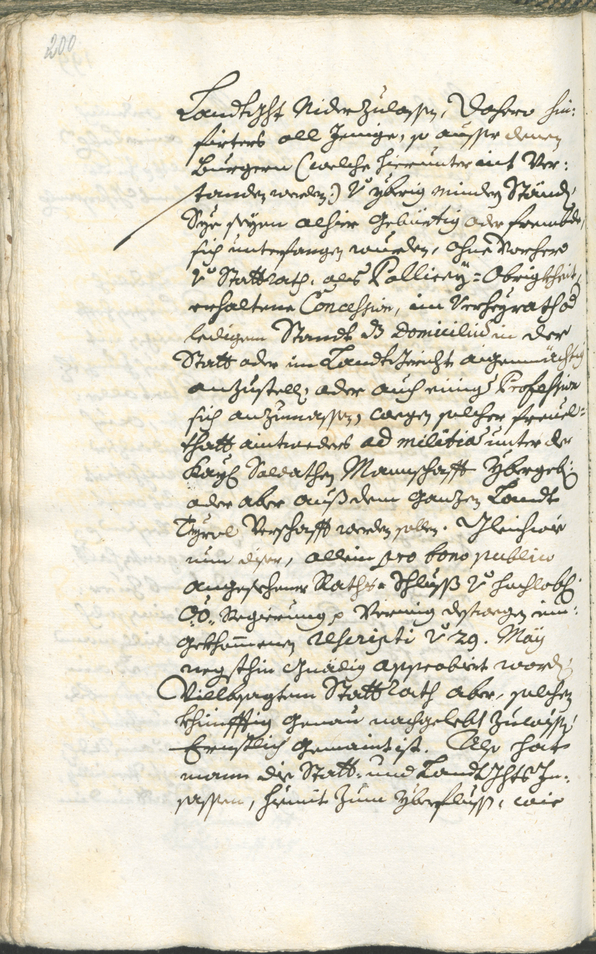 200
Landtghts Niderzulassen, Dahero hin:
fürters all Jenige, so ausser denen
Burgern (welche hierunter nit Ver:
standen werden) v. ybrig mindern Ständ,
Sye seyen alhier gebürtig oder frembde,
sich unterfangen wurden, ohne vorhero
v. Stattrath, als Pollicey-Obrigkheit,
erhaltene Concession, im Verheyrath od
ledigem Standt dz Domicilium in der
Statt oder im Landtgericht aigenmächtig
anzustelln, oder auch einige Profession
sich anzumassen, wegen solcher freuel-
thatt aintweders ad militiam unter die
Kayl Soldathen Mannschafft ybergebn,
oder aber auß dem ganzen Landt
Tyrol Verschafft werden sollen. Gleichwie
nun diser, allein pro bono publico
angesehener Raths-Schluss v. hochlobl.
O:Ö. Regierung, p Vermög destwegen ein:
gekhommenen Rescripti v. 29. Maÿ
negsthin gnädig approbiert worden,
Villbesagtem Stattrath aber, solchem
khünfftig genau nachgelebt zulassen,
Ernstlich gemaint ist. Also hat
mann die Statt- und Landtghts In:
sassen, hiemit zum yberfluss, wie